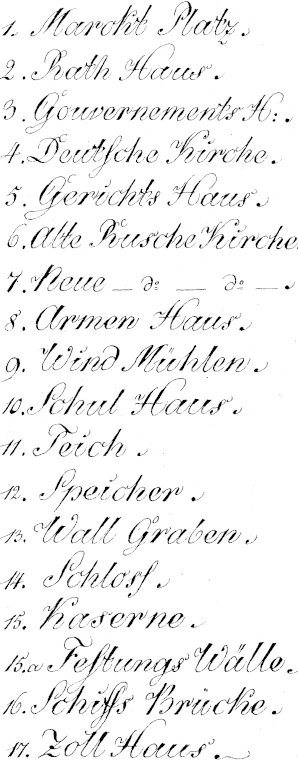 1. Marckt Platz.
2. Rath Haus.
3. Gouvernements H:.
4. Deutsche Kirche.
5. Gerichts Haus.
6. Alte Rusche Kirche.
7. Neue — do — do —.
8. Armen Haus.
9. Wind Mühlen.
10. Schul Haus.
11. Teich.
12. Speicher.
13. Wall Graben.
14. Schloss.
15. Kaserne.
15.a Festungs Wälle.
16. Schiffs Brücke.
17. Zoll Haus.